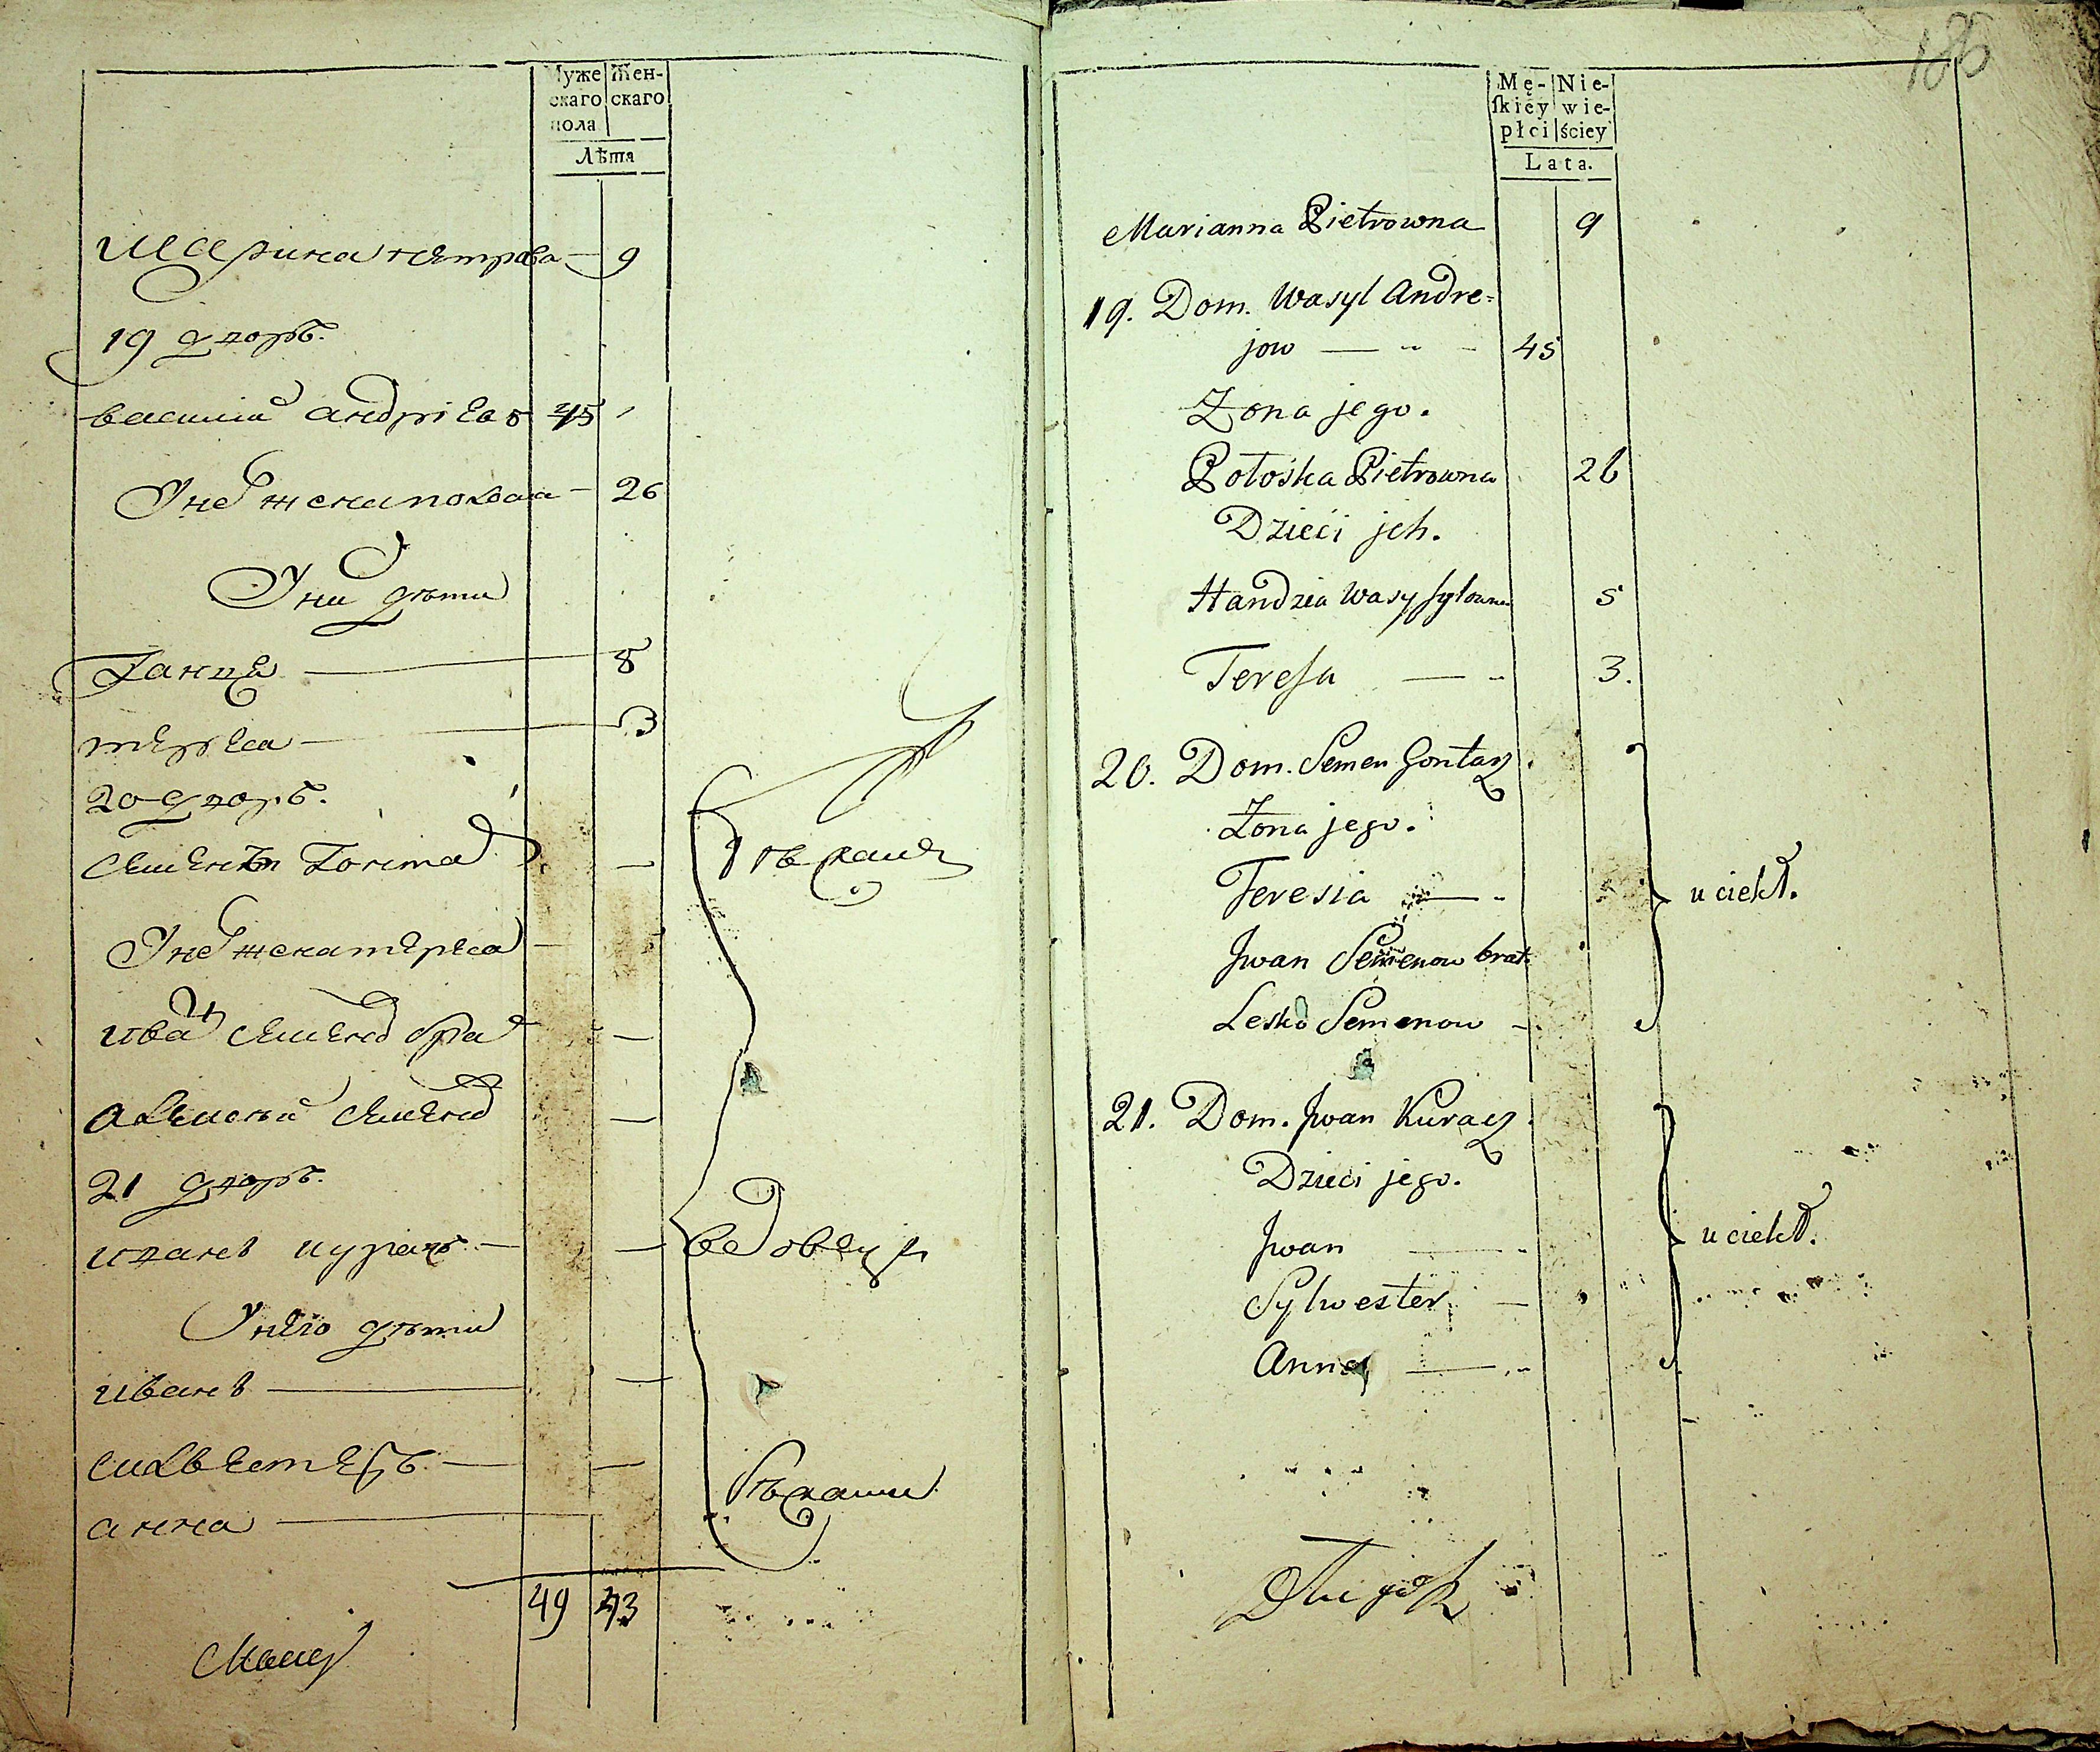 Мужескаго пола
Женскаго
Лѣта
Марина петрова 9
19 дворъ.
василий андрiевъ 45
У не жена полага 26
У ни дѣти
Ганца 5
тереса 3
20 дворъ.
семенъ Гонта
бѣжали
У не жена тереса
иван семено брат
алексѣй семено
21 дворъ.
иванъ курачъ
вдовец
У него дѣти
иванъ
силвестеръ
бѣжали
анна
49 43
186
Mę-ſkiéy płci
Niewieściey
Lata.
Marianna Pietrowna 9
19. Dom. Wasyl Andre-
jow 45
Żona jego.
Połośka Pietrowna 26
Dzieći jch.
Handzia Wasysylowna 5
Tereſsa 3.
20. Dom. Semen Gontarz.
Żona jego.
Teresia
uciekł.
Jwan Semenow brat.
Lesko Semenow
21. Dom. Jwan Kuracz.
Dzieci jego.
Jwan
uciekł.
Sylwester
Anna